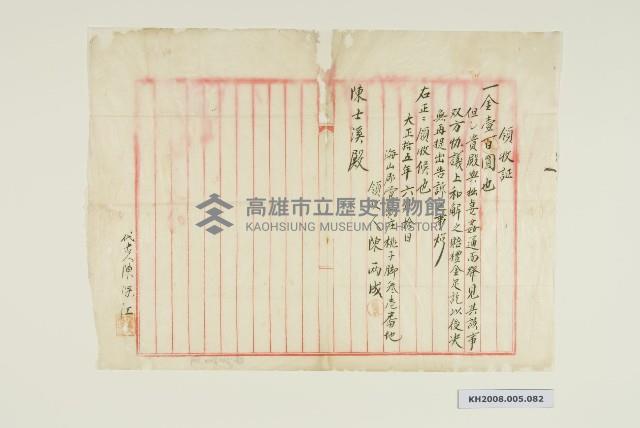 領收証
一金壹百圓也
但シ貴殿與拙妻姦通而發見其該事
双方協議上和解之賠禮金足訖以後決
無再提出告訴事
右正ニ領收候也
大正拾五年六拾日
海山郡鶯庄桃子腳
番地
領人陳丙成
陳士溪殿
代書人陳深江
高雄市立歷史博物館
KAOHSIUNG MUSEUM OF HISTORY
KH2008.005.082